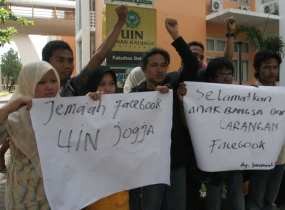 UIN
UIN
Fakultas
Jema'ah Facebook
UIN Jogja
Selamatkan
ANAK BANGSA DARI
LARANGAN
Facebook